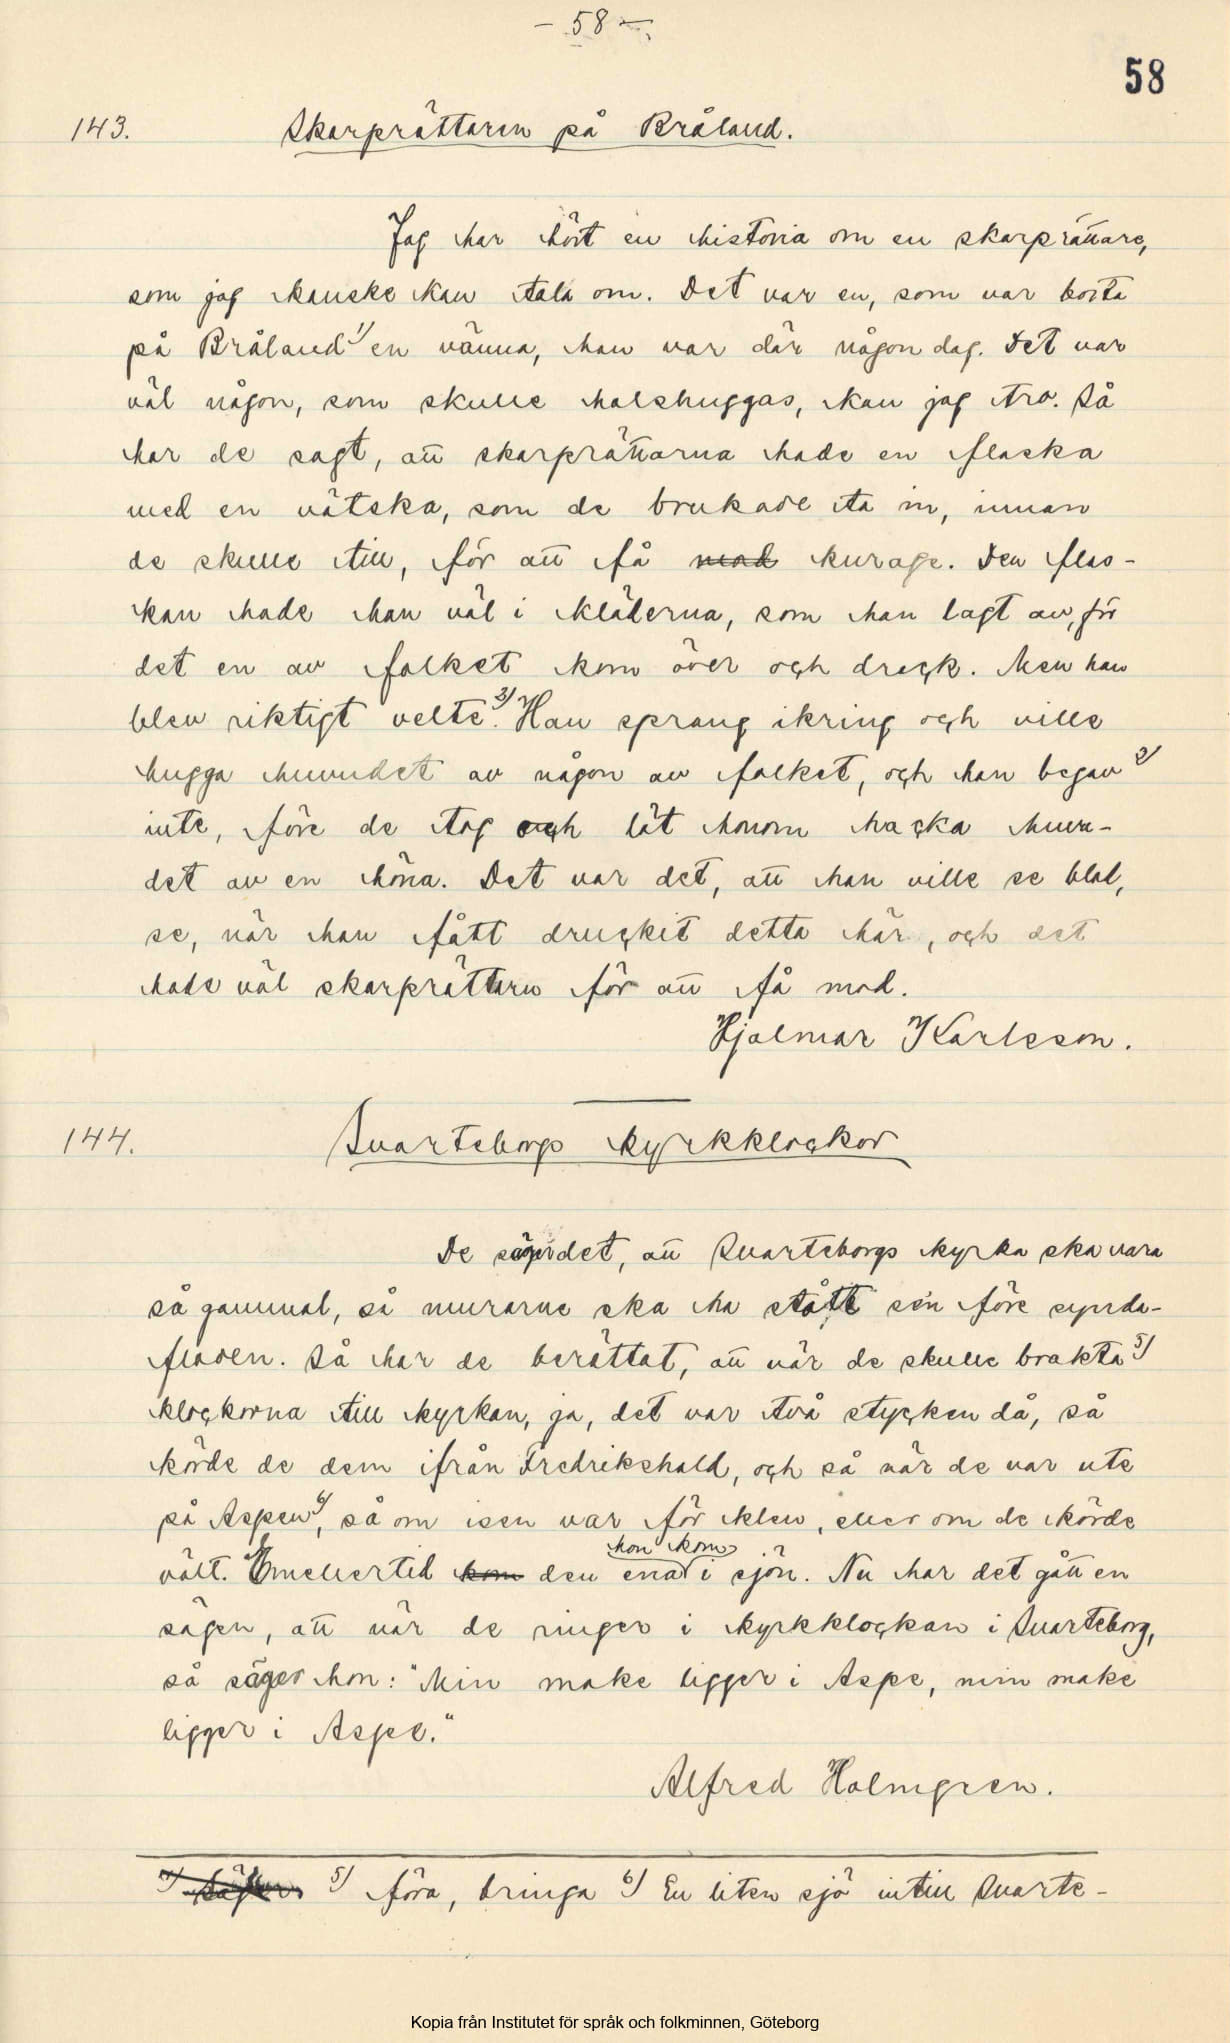 - 58 -
58
143. Skarprättaren på Bråland.
Jag har hört en historia om en skarprättare,
som jag kanske kan tala om. Det var en, som var borta
på Bråland 1/ en vänna, han var där någon dag. Det var
väl någon, som skulle halshuggas, kan jag tro. Så
har de sagt, att skarprättarna hade en flaska
med en vätska, som de brukade ta in, innan
de skulle till, för att få mod kurage. Den flas-
kan hade han väl i kläderna, som han lagt av, för
det en av folket kom över och dreck. Men han
blev riktigt velte. 3/ Han sprang ikring och ville
hugga huvudet av någon av folket, och han begav 2/
inte, före de tog och lät honom hacka huvu-
det av en höna. Det var det, att han ville se blod,
se, när han fått druckit detta här, och det
hade väl skarprättarn för att få mod.
Hjalmar Karlsson.
144. Svarteborgs kyrkklockor
De säger det, att Svarteborgs kyrka ska vara
så gammal, så murarne ska ha stått sén före synda-
floden. Så har de berättat, att när de skulle brakta 5/
klockorna till kyrkan, ja, det var två stycken då, så
körde de dem ifrån Fredrikshald, och så när de var ute
på Aspen 6/, så om isen var för klen, eller om de körde
vält. Emellertid kom den ena hon kom i sjön. Nu har det gått en
sägen, att när de ringer i kyrkklockan i Svarteborg,
så säger hon: "Min make ligger i Aspe, min make
ligger i Aspe."
Alfred Holmgren.
5/ föra, bringa 6/ En liten sjö intill Svarte-
Kopia från Institutet för språk och folkminnen, Göteborg